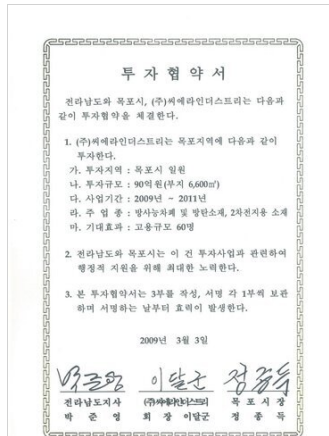 투 자 협 약 서
전라남도와 목포시, (주)씨에라인더스트리는 다음과
같이 투자협약을 체결한다.
1. (주)씨에라인더스트리는 목포지역에 다음과 같이
투자한다.
가. 투자지역 : 목포시 일원
나. 투자규모 : 90억원(부지 6,600㎡)
다. 사업기간 : 2009년 ~ 2011년
라. 주 업 종 : 방사능차폐 및 방탄소재, 2차전지용 소재
마. 기대효과 : 고용규모 60명
2. 전라남도와 목포시는 이 건 투자사업과 관련하여
행정적 지원을 위해 최대한 노력한다.
3. 본 투자협약서는 3부를 작성, 서명 각 1부씩 보관
하며 서명하는 날부터 효력이 발생한다.
2009년 3월 3일
박준영 이달군 정종득
전라남도지사 (주)씨에라인더스트리 목 포 시 장
박 준 영 회 장 이달군 정 종 득